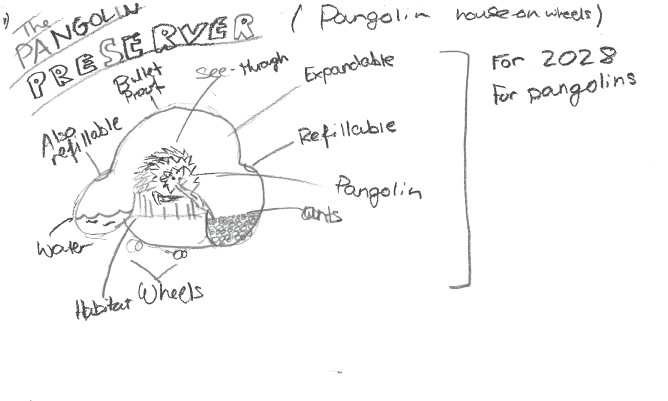 1) The
PANGOLIN
PRESERVER
(Pangolin house on wheels)
For 2028
For pangolins
Bullet
Proof
see-through
Expandable
Also
refillable
Refillable
Pangolin
ants
Water
Habitat
Wheels